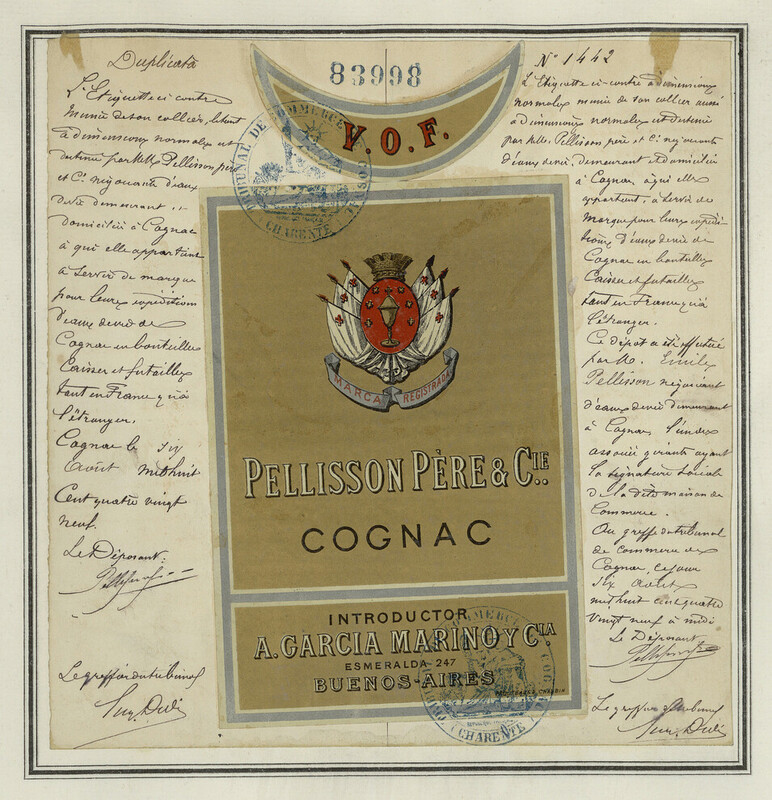 Duplicata
L'Etiquette ci contre
munie de son collier, étant
à dimensions normales est
détenue par Mrs Pellisson père
et Cie négociants d'eaux
de vie demeurant et
domiciliés à Cognac
à qui elle appartient
a servir de marque
pour leurs expéditions
d'eaux de vie de
Cognac en bouteilles
Caisses et futailles
tant en France qu'à
l'étranger.
Cognac le six
Août mil huit
Cent quatre vingt
neuf.
Le Déposant
Le greffier du tribunal
83998
V.O.F.
TRIBUNAL DE COMMERCE
COGNAC
CHARENTE
MARCA REGISTRADA
PELLISSON PÈRE & CIE.
COGNAC
INTRODUCTOR
A. GARCIA MARINO Y CIA
ESMERALDA 247
BUENOS-AIRES
CHARENTE
No 1442
L'Etiquette ci-contre à dimensions
normales munie de son collier aussi
à dimensions normales est détenue
par Mrs Pellisson père et Cie négociants
d'eaux de vie. Demeurant et domiciliés
à Cognac, à qui elle
appartient, a servir de
marque pour leurs expédi
tions d'eaux de vie de
Cognac en bouteilles
Caisses et futailles
tant en France qu'à
l'étranger.
Ce dépôt a été effectué
par M. Emile
Pellisson négociant
d'eaux de vie demeurant
à Cognac, l'un des
associés gérants ayant
la signature sociale
de la dite maison de
Commerce.
Au greffe du tribunal
de commerce de
Cognac, ce jour
six Août
mil huit cent quatre
vingt neuf à midi
Le Déposant
Le greffier du tribunal